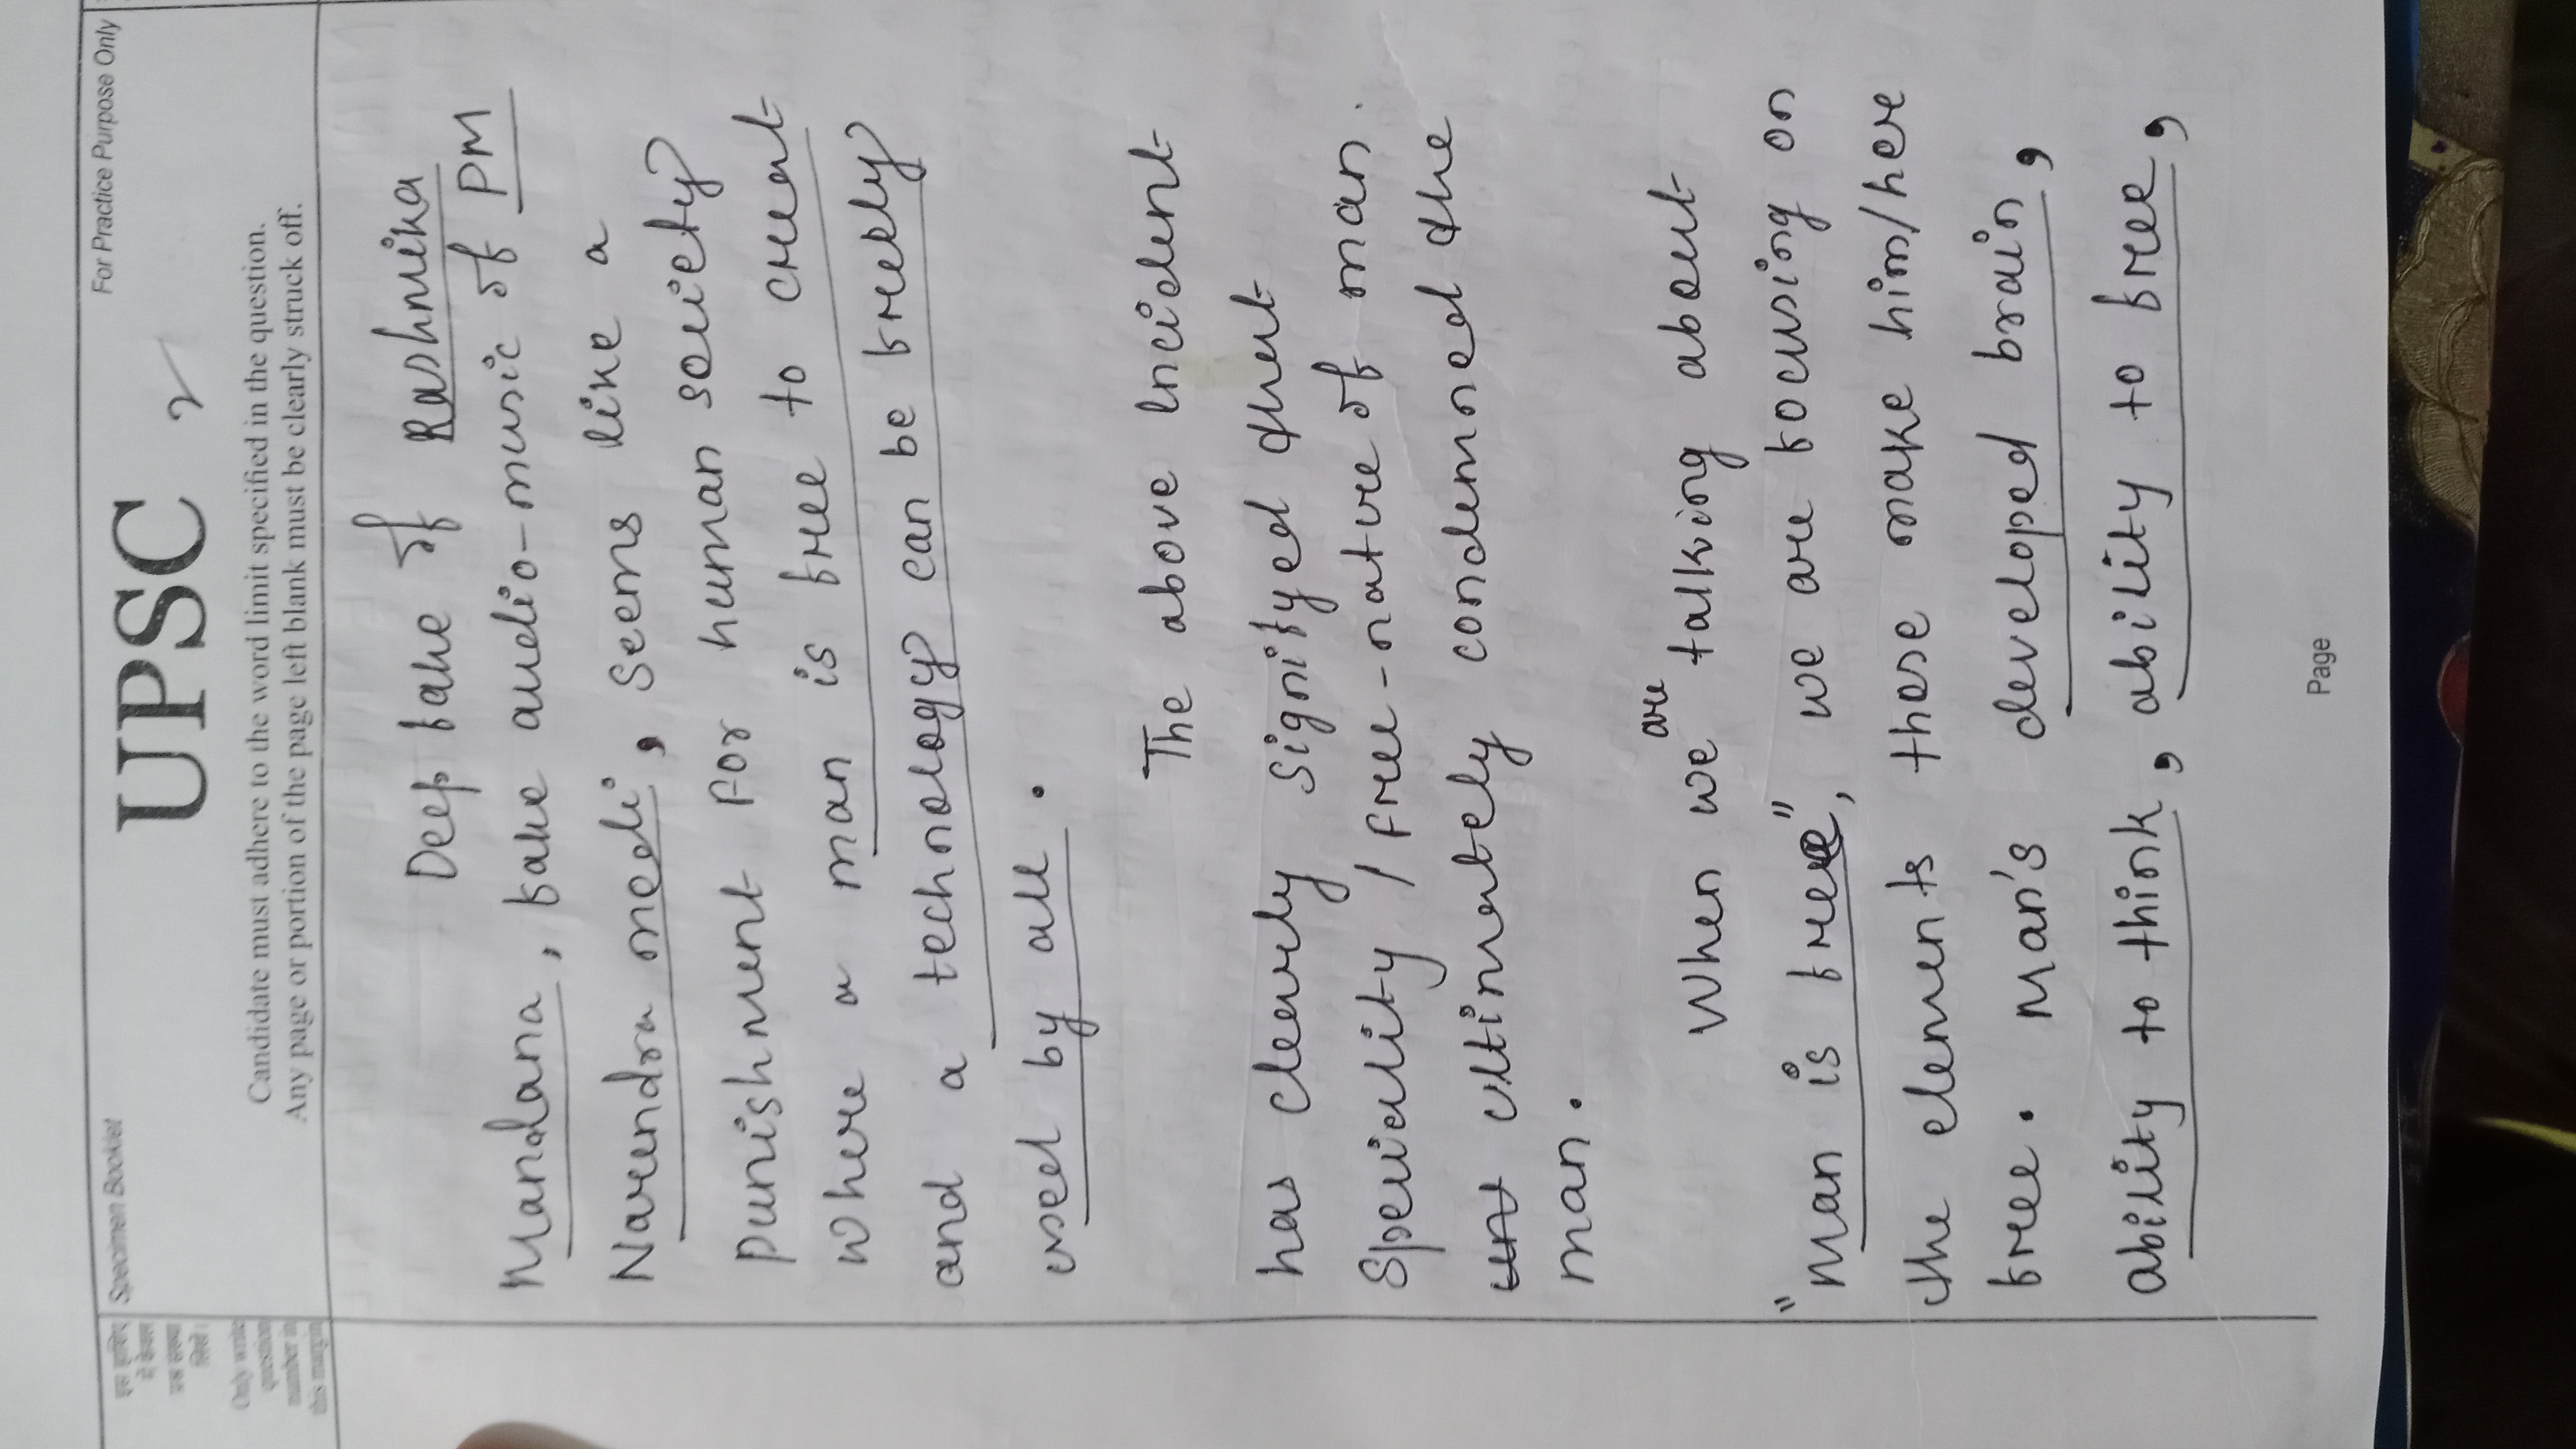 Specimen Booklet
For Practice Purpose Only
UPSC
2
Candidate must adhere to the word limit specified in the question.
Any page or portion of the page left blank must be clearly struck off.
Only write
question
number in
this margin
Deep fake of Rashmika
Mandana, fake audio-music of PM
Narendra modi, seems like a
punishment for human society
where a man is free to creat
and a technology can be freely
used by all.
The above incident
has clearly signifyed that
speciality / free-nature of man.
ultimately condemned the
man.
When we are talking about
"man is free", we are focusing on
the elements these make him/here
free. Man's developed brain,
ability to think, ability to free,
Page